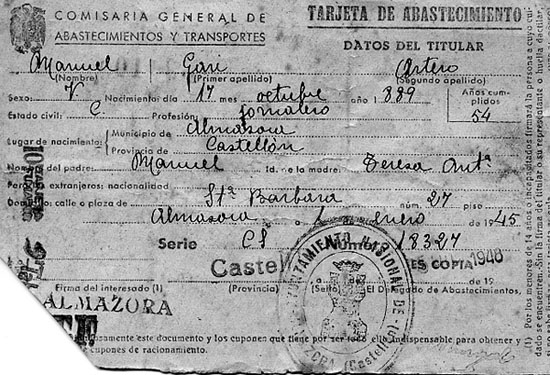 COMISARIA GENERAL DE
ABASTECIMIENTOS Y TRANSPORTES
TARJETA DE ABASTECIMIENTO
DATOS DEL TITULAR
Manuel Gari Artero
(Nombre) (Primer apellido) (Segundo apellido)
Sexo: V Nacimiento: día 17 mes octubre año 1889
Años cumplidos
54
Estado civil: C. Profesión: Jornalero
Lugar de nacimiento: Municipio de Almazora
Provincia de Castellón
Nombre del padre: Manuel Id. de la madre: Teresa Antª
Para los extranjeros: nacionalidad
Domicilio: calle o plaza de Stª Barbara núm. 27 piso
Almazora a 1 Enero de 1945
Serie CS Número 18327
Castel
ES COPIA 1946
de 19
Firma del interesado (1) (Provincia) (Sello) El Delegado de Abastecimientos.
ALMAZORA
AYUNTAMIENTO NACIONAL DE
(Castellón)
este documento y los cupones que tiene por ser todo ello indispensable para obtener y
cupones de racionamiento.
(1) Por los menores de 14 años o incapacitados firmará la persona a cuyo cui-
dado se encuentren. Sin la firma del titular o su representante o huella dactilar,